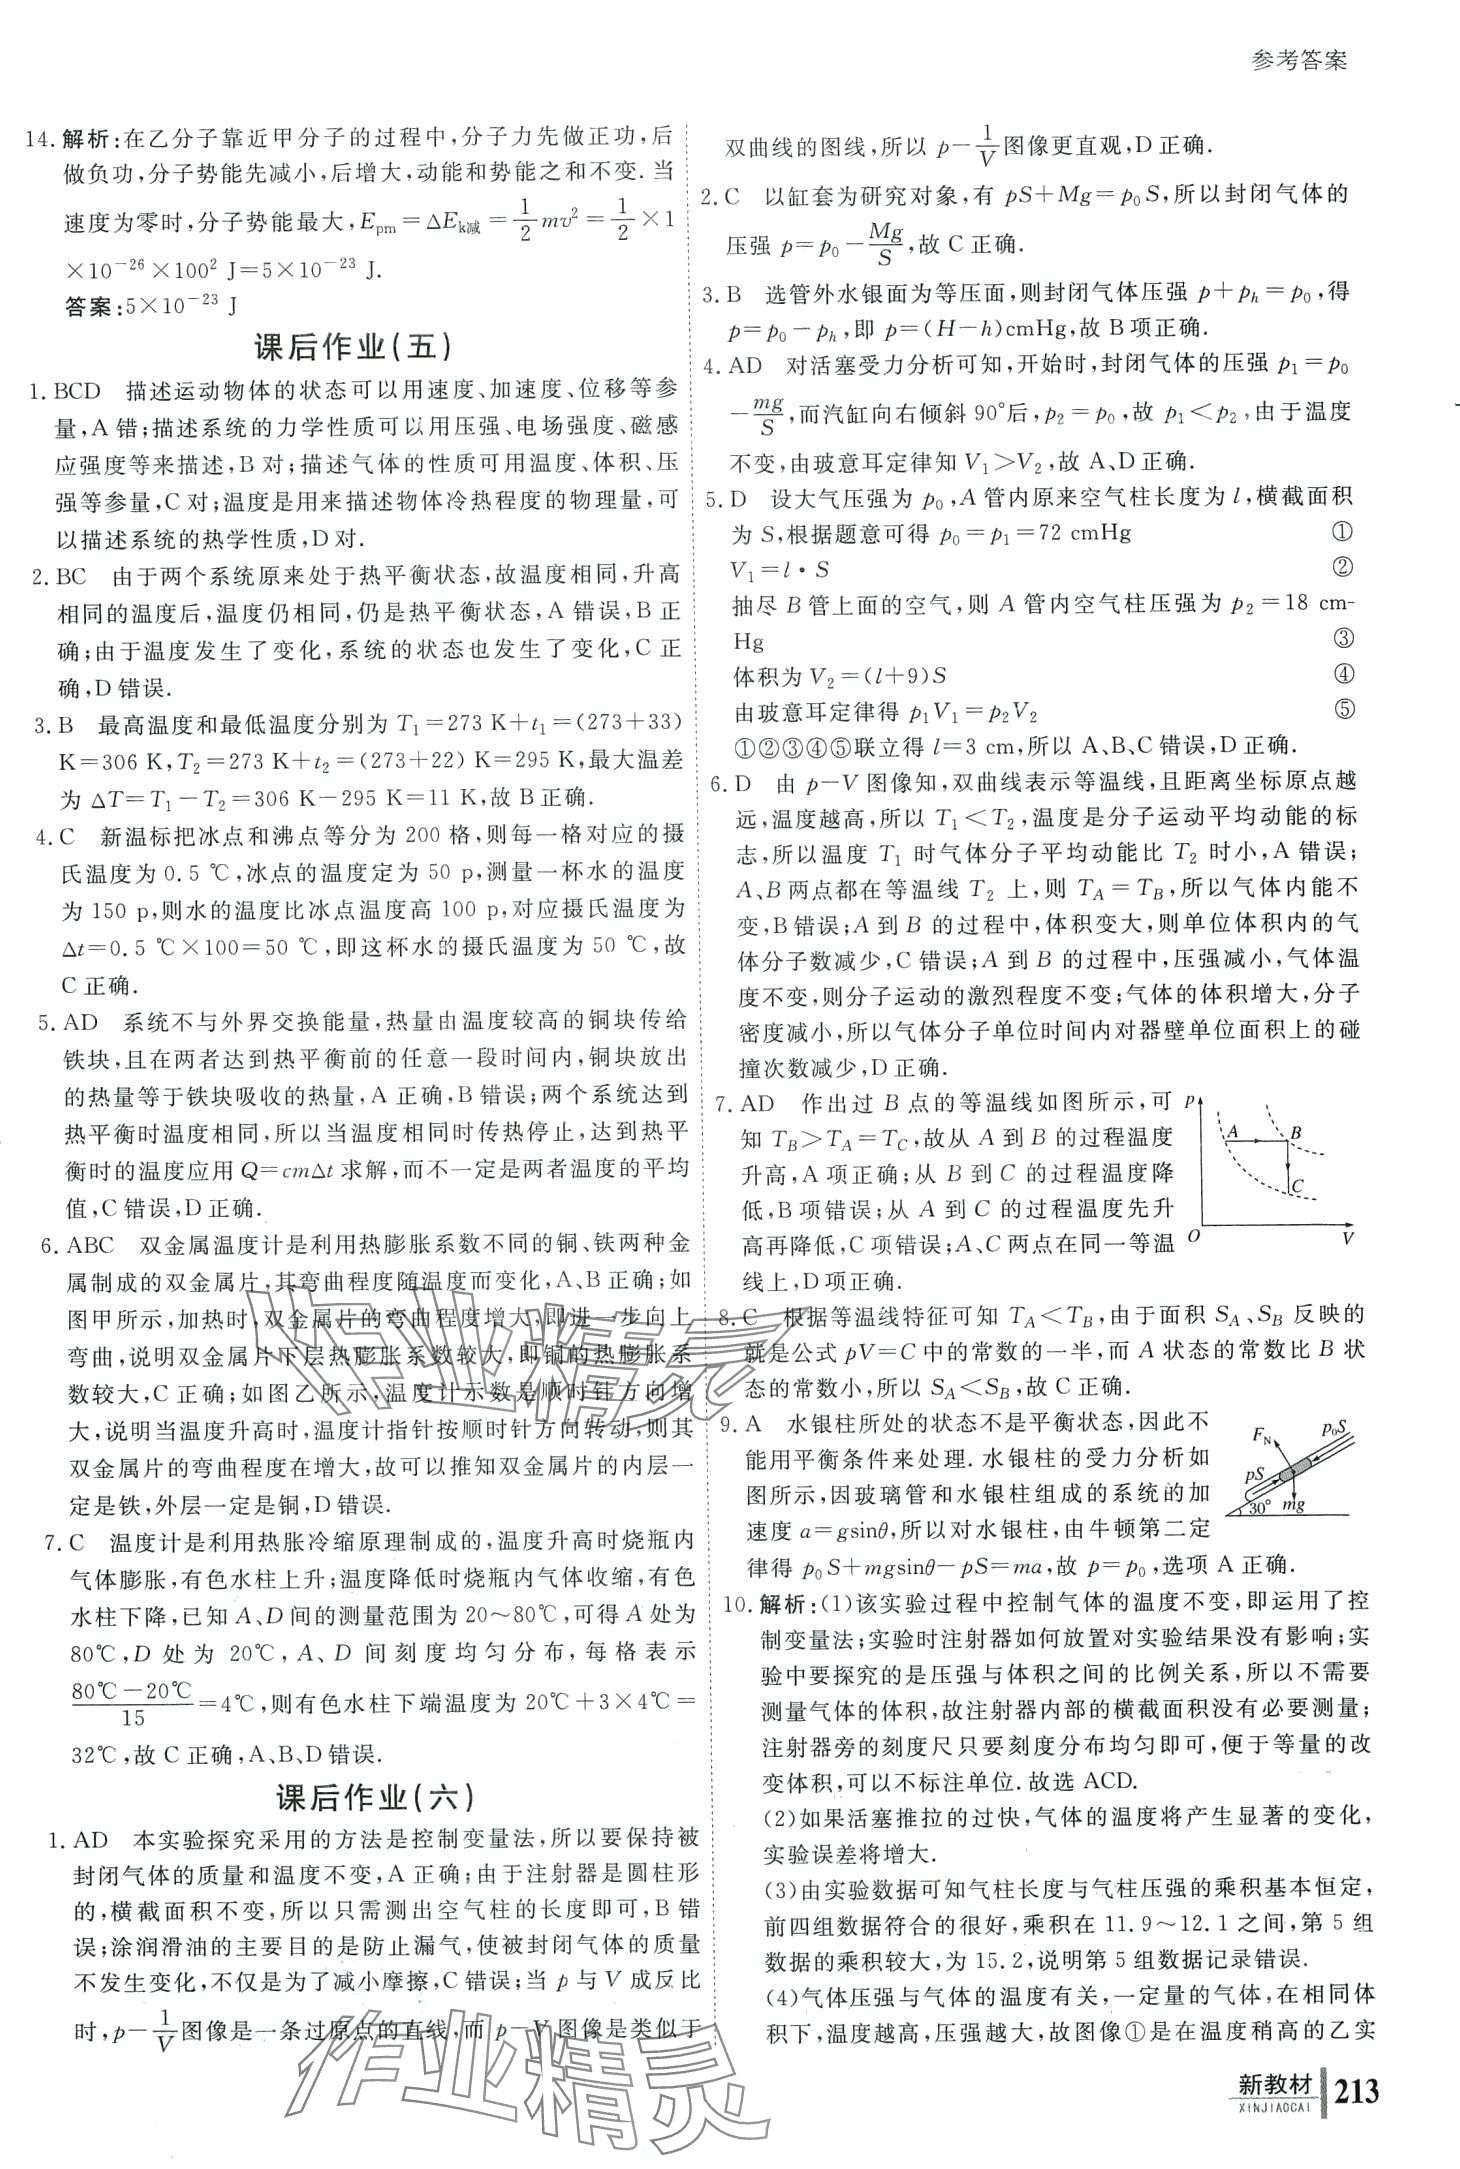 参考答案
14. 解析:在乙分子靠近甲分子的过程中,分子力先做正功,后
做负功,分子势能先减小,后增大,动能和势能之和不变.当
速度为零时,分子势能最大,Epm=ΔEk减=1/2 mv²=1/2×1
×10⁻²⁶×100² J=5×10⁻²³ J.
答案:5×10⁻²³ J
课后作业(五)
1. BCD 描述运动物体的状态可以用速度、加速度、位移等参
量,A错;描述系统的力学性质可以用压强、电场强度、磁感
应强度等来描述,B对;描述气体的性质可用温度、体积、压
强等参量,C对;温度是用来描述物体冷热程度的物理量,可
以描述系统的热学性质,D对.
2. BC 由于两个系统原来处于热平衡状态,故温度相同,升高
相同的温度后,温度仍相同,仍是热平衡状态,A错误,B正
确;由于温度发生了变化,系统的状态也发生了变化,C正
确,D错误.
3. B 最高温度和最低温度分别为 T₁=273 K+t₁=(273+33)
K=306 K,T₂=273 K+t₂=(273+22) K=295 K,最大温差
为 ΔT=T₁-T₂=306 K-295 K=11 K,故B正确.
4. C 新温标把冰点和沸点等分为 200 格,则每一格对应的摄
氏温度为 0.5 ℃,冰点的温度定为 50 p,测量一杯水的温度
为 150 p,则水的温度比冰点温度高 100 p,对应摄氏温度为
Δt=0.5 ℃×100=50 ℃,即这杯水的摄氏温度为 50 ℃,故
C正确.
5. AD 系统不与外界交换能量,热量由温度较高的铜块传给
铁块,且在两者达到热平衡前的任意一段时间内,铜块放出
的热量等于铁块吸收的热量,A正确,B错误;两个系统达到
热平衡时温度相同,所以当温度相同时传热停止,达到热平
衡时的温度应用 Q=cmΔt 求解,而不一定是两者温度的平均
值,C错误,D正确.
6. ABC 双金属温度计是利用热膨胀系数不同的铜、铁两种金
属制成的双金属片,其弯曲程度随温度而变化,A、B正确;如
图甲所示,加热时,双金属片的弯曲程度增大,即进一步向上
弯曲,说明双金属片下层热膨胀系数较大,即铜的热膨胀系
数较大,C正确;如图乙所示,温度计示数是顺时针方向增
大,说明当温度升高时,温度计指针按顺时针方向转动,则其
双金属片的弯曲程度在增大,故可以推知双金属片的内层一
定是铁,外层一定是铜,D错误.
7. C 温度计是利用热胀冷缩原理制成的,温度升高时烧瓶内
气体膨胀,有色水柱上升;温度降低时烧瓶内气体收缩,有色
水柱下降,已知 A、D 间的测量范围为 20~80℃,可得 A 处为
80℃,D 处为 20℃,A、D 间刻度均匀分布,每格表示
(80℃-20℃)/15=4℃,则有色水柱下端温度为 20℃+3×4℃=
32℃,故C正确,A、B、D错误.
课后作业(六)
1. AD 本实验探究采用的方法是控制变量法,所以要保持被
封闭气体的质量和温度不变,A正确;由于注射器是圆柱形
的,横截面积不变,所以只需测出空气柱的长度即可,B错
误;涂润滑油的主要目的是防止漏气,使被封闭气体的质量
不发生变化,不仅是为了减小摩擦,C错误;当 p 与 V 成反比
时,p-1/V图像是一条过原点的直线,而 p-V 图像是类似于
双曲线的图线,所以 p-1/V图像更直观,D正确.
2. C 以缸套为研究对象,有 pS+Mg=p₀S,所以封闭气体的
压强 p=p₀-Mg/S,故C正确.
3. B 选管外水银面为等压面,则封闭气体压强 p+pₕ=p₀,得
p=p₀-pₕ,即 p=(H-h)cmHg,故B项正确.
4. AD 对活塞受力分析可知,开始时,封闭气体的压强 p₁=p₀
-mg/S,而汽缸向右倾斜90°后,p₂=p₀,故 p₁<p₂,由于温度
不变,由玻意耳定律知 V₁>V₂,故A、D正确.
5. D 设大气压强为 p₀,A 管内原来空气柱长度为 l,横截面积
为 S,根据题意可得 p₀=p₁=72 cmHg ①
V₁=l·S ②
抽尽 B 管上面的空气,则 A 管内空气柱压强为 p₂=18 cm-
Hg ③
体积为 V₂=(l+9)S ④
由玻意耳定律得 p₁V₁=p₂V₂ ⑤
①②③④⑤联立得 l=3 cm,所以A、B、C错误,D正确.
6. D 由 p-V 图像知,双曲线表示等温线,且距离坐标原点越
远,温度越高,所以 T₁<T₂,温度是分子运动平均动能的标
志,所以温度 T₁ 时气体分子平均动能比 T₂ 时小,A错误;
A、B 两点都在等温线 T₂ 上,则 TA=TB,所以气体内能不
变,B错误;A 到 B 的过程中,体积变大,则单位体积内的气
体分子数减少,C错误;A 到 B 的过程中,压强减小,气体温
度不变,则分子运动的激烈程度不变;气体的体积增大,分子
密度减小,所以气体分子单位时间内对器壁单位面积上的碰
撞次数减少,D正确.
7. AD 作出过 B 点的等温线如图所示,可
知 TB>TA=TC,故从 A 到 B 的过程温度
升高,A项正确;从 B 到 C 的过程温度降
低,B项错误;从 A 到 C 的过程温度先升
高再降低,C项错误;A、C 两点在同一等温
线上,D项正确.
p
A
B
C
O
V
8. C 根据等温线特征可知 TA<TB,由于面积 SA、SB 反映的
就是公式 pV=C 中的常数的一半,而 A 状态的常数比 B 状
态的常数小,所以 SA<SB,故C正确.
9. A 水银柱所处的状态不是平衡状态,因此不
能用平衡条件来处理.水银柱的受力分析如
图所示,因玻璃管和水银柱组成的系统的加
速度 a=gsinθ,所以对水银柱,由牛顿第二定
律得 p₀S+mgsinθ-pS=ma,故 p=p₀,选项A正确.
FN
p₀S
pS
30°
mg
10. 解析:(1)该实验过程中控制气体的温度不变,即运用了控
制变量法;实验时注射器如何放置对实验结果没有影响;实
验中要探究的是压强与体积之间的比例关系,所以不需要
测量气体的体积,故注射器内部的横截面积没有必要测量;
注射器旁的刻度尺只要刻度分布均匀即可,便于等量的改
变体积,可以不标注单位.故选 ACD.
(2)如果活塞推拉的过快,气体的温度将产生显著的变化,
实验误差将增大.
(3)由实验数据可知气柱长度与气柱压强的乘积基本恒定,
前四组数据符合的很好,乘积在 11.9~12.1 之间,第 5 组
数据的乘积较大,为 15.2,说明第 5 组数据记录错误.
(4)气体压强与气体的温度有关,一定量的气体,在相同体
积下,温度越高,压强越大,故图像①是在温度稍高的乙实
新教材
XINJIAOCAI
213
作业精灵
作业精灵